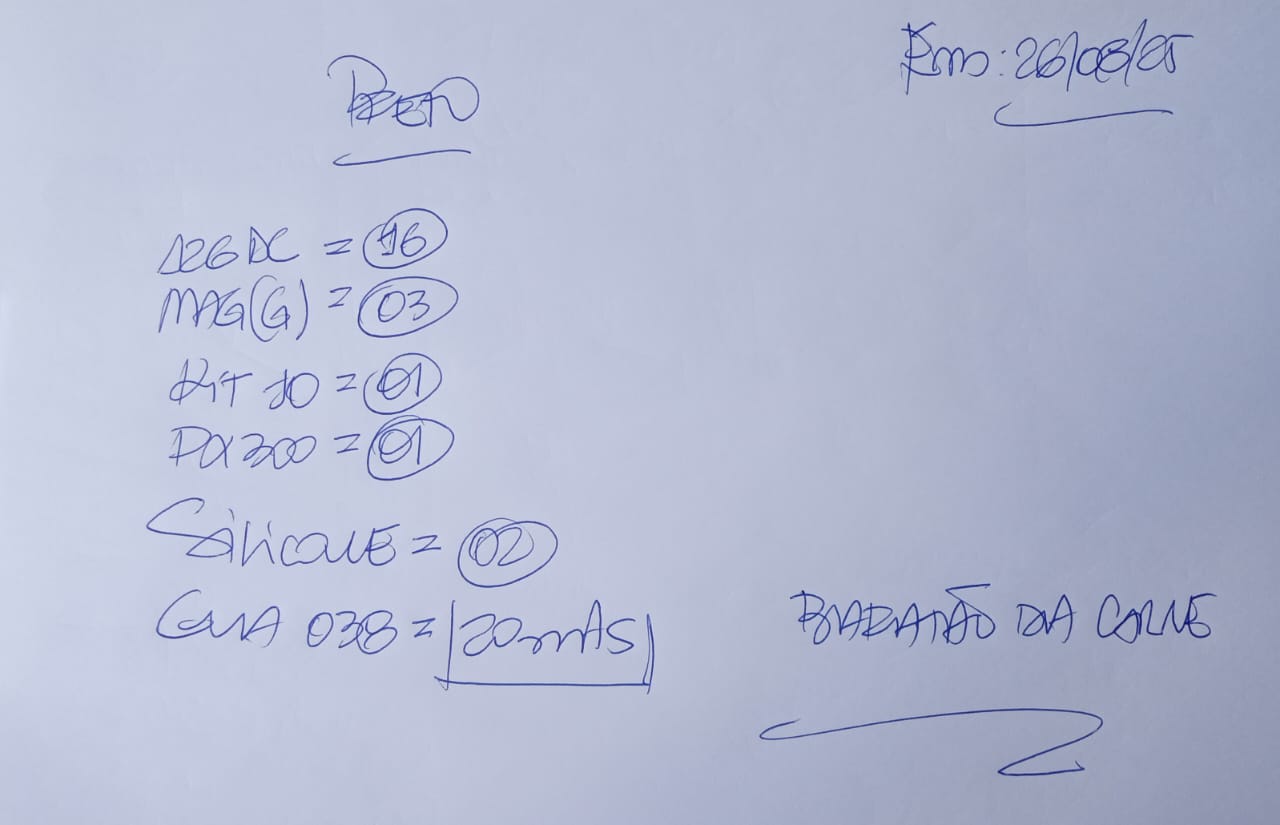 Rmo: 26/08/25
126 DC = 16
MAG(G) = 03
Kit 10 = 01
PX 300 = 01
Silicone = 02
GUIA 038 = 20mts
BARATÃO DA CARNE